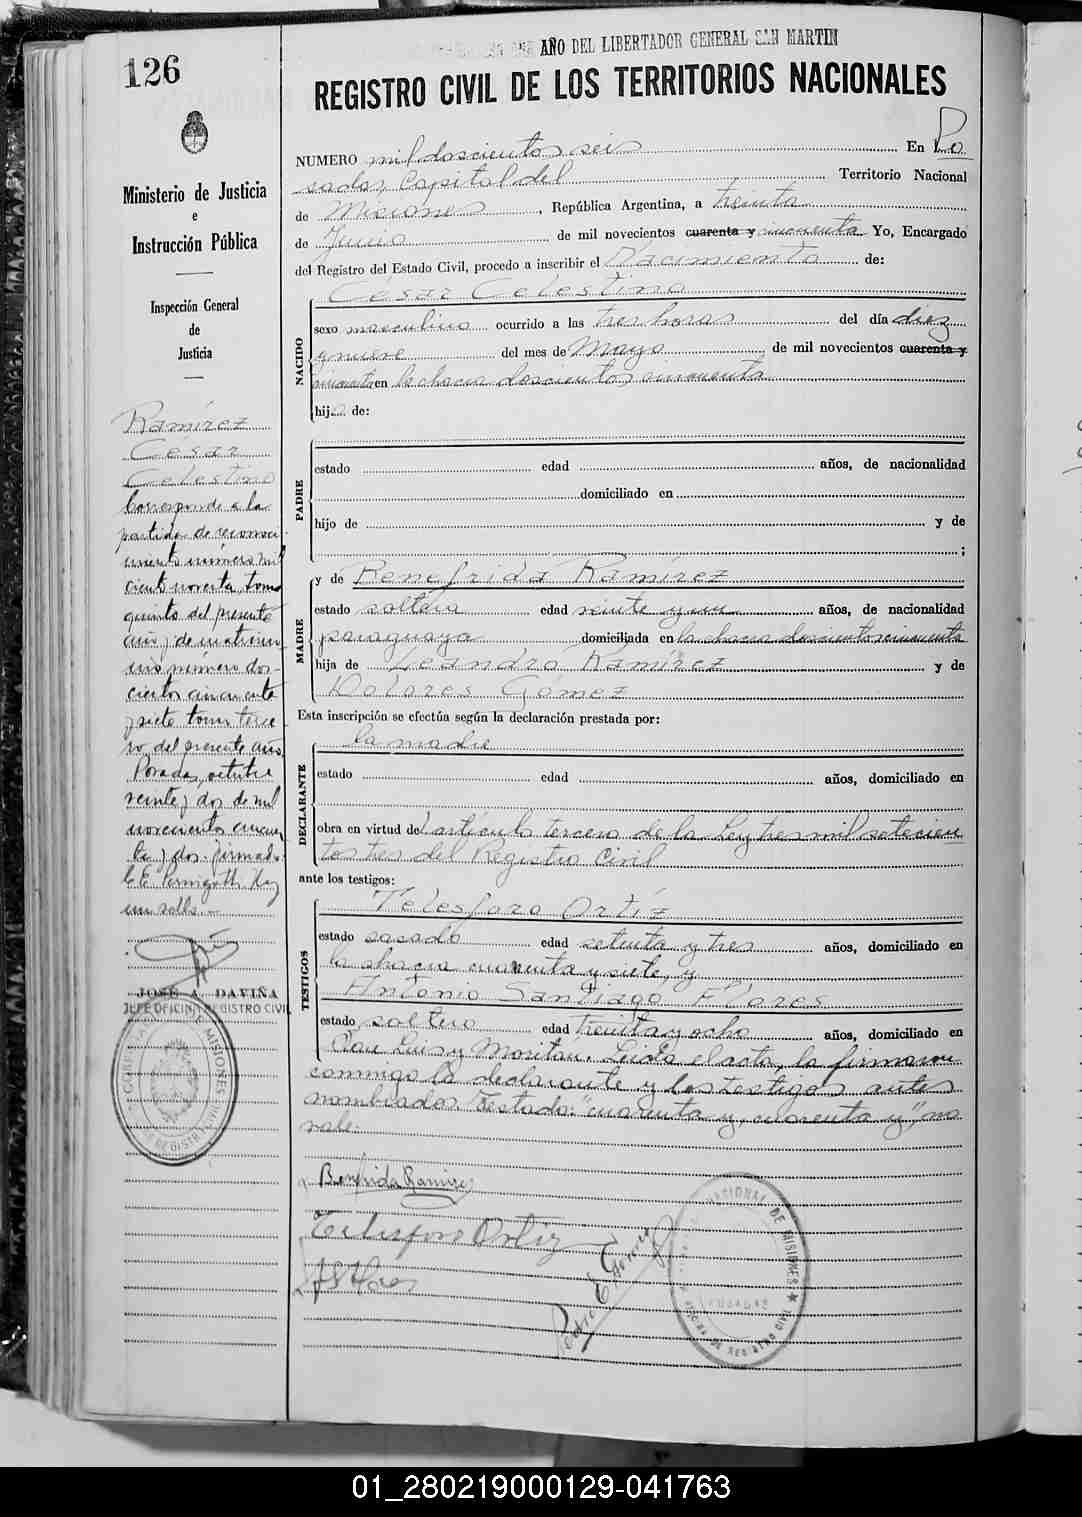 126
AÑO DEL LIBERTADOR GENERAL SAN MARTIN
REGISTRO CIVIL DE LOS TERRITORIOS NACIONALES
Ministerio de Justicia
e
Instrucción Pública
Inspección General
de
Justicia
Ramírez
César
Celestino
Corresponde a la
partida de reconoci
miento número mil
ciento noventa tomo
quinto del presente
año y de matrimo
nio número dos-
cientos cincuenta
y siete tomo terce
ro del presente año
Posadas, octubre
veinte y dos de mil
novecientos cincuen
ta y dos. firmado
un sello.-
JOSÉ A. DAVIÑA
JEFE OFICINA REGISTRO CIVIL
NUMERO mil doscientos seis En Po
sadas, Capital del Territorio Nacional
de Misiones, República Argentina, a treinta
de Junio de mil novecientos cuarenta y cincuenta Yo, Encargado
del Registro del Estado Civil, procedo a inscribir el Nacimiento de:
NACIDO
César Celestino
sexo masculino ocurrido a las tres horas del día diez
y nueve del mes de Mayo de mil novecientos cuarenta y
cincuenta en la chacra doscientos cincuenta
hijo de:
PADRE
estado edad años, de nacionalidad
domiciliado en
hijo de y de
;
MADRE
y de Benefrida Ramírez
estado soltera edad veinte y un años, de nacionalidad
paraguaya domiciliada en la chacra doscientos cincuenta
hija de Leandro Ramírez y de
Dolores Gómez
Esta inscripción se efectúa según la declaración prestada por:
DECLARANTE
la madre
estado edad años, domiciliado en
obra en virtud del artículo tercero de la Ley tres mil setecien
tos tres del Registro Civil
ante los testigos:
TESTIGOS
Telesforo Ortíz
estado casado edad setenta y tres años, domiciliado en
la chacra cuarenta y siete, y
Antonio Santiago Flores
estado soltero edad treinta y ocho años, domiciliado en
San Luis y Moritán. Leída el acta, la firmaron
conmigo la declarante y los testigos antes
nombrados. Testado: "cuarenta y, cuarenta y", no
vale.
Benefrida Ramirez
Telesforo Ortiz
A S Flores
NACIONAL DE MISIONES
01_280219000129-041763